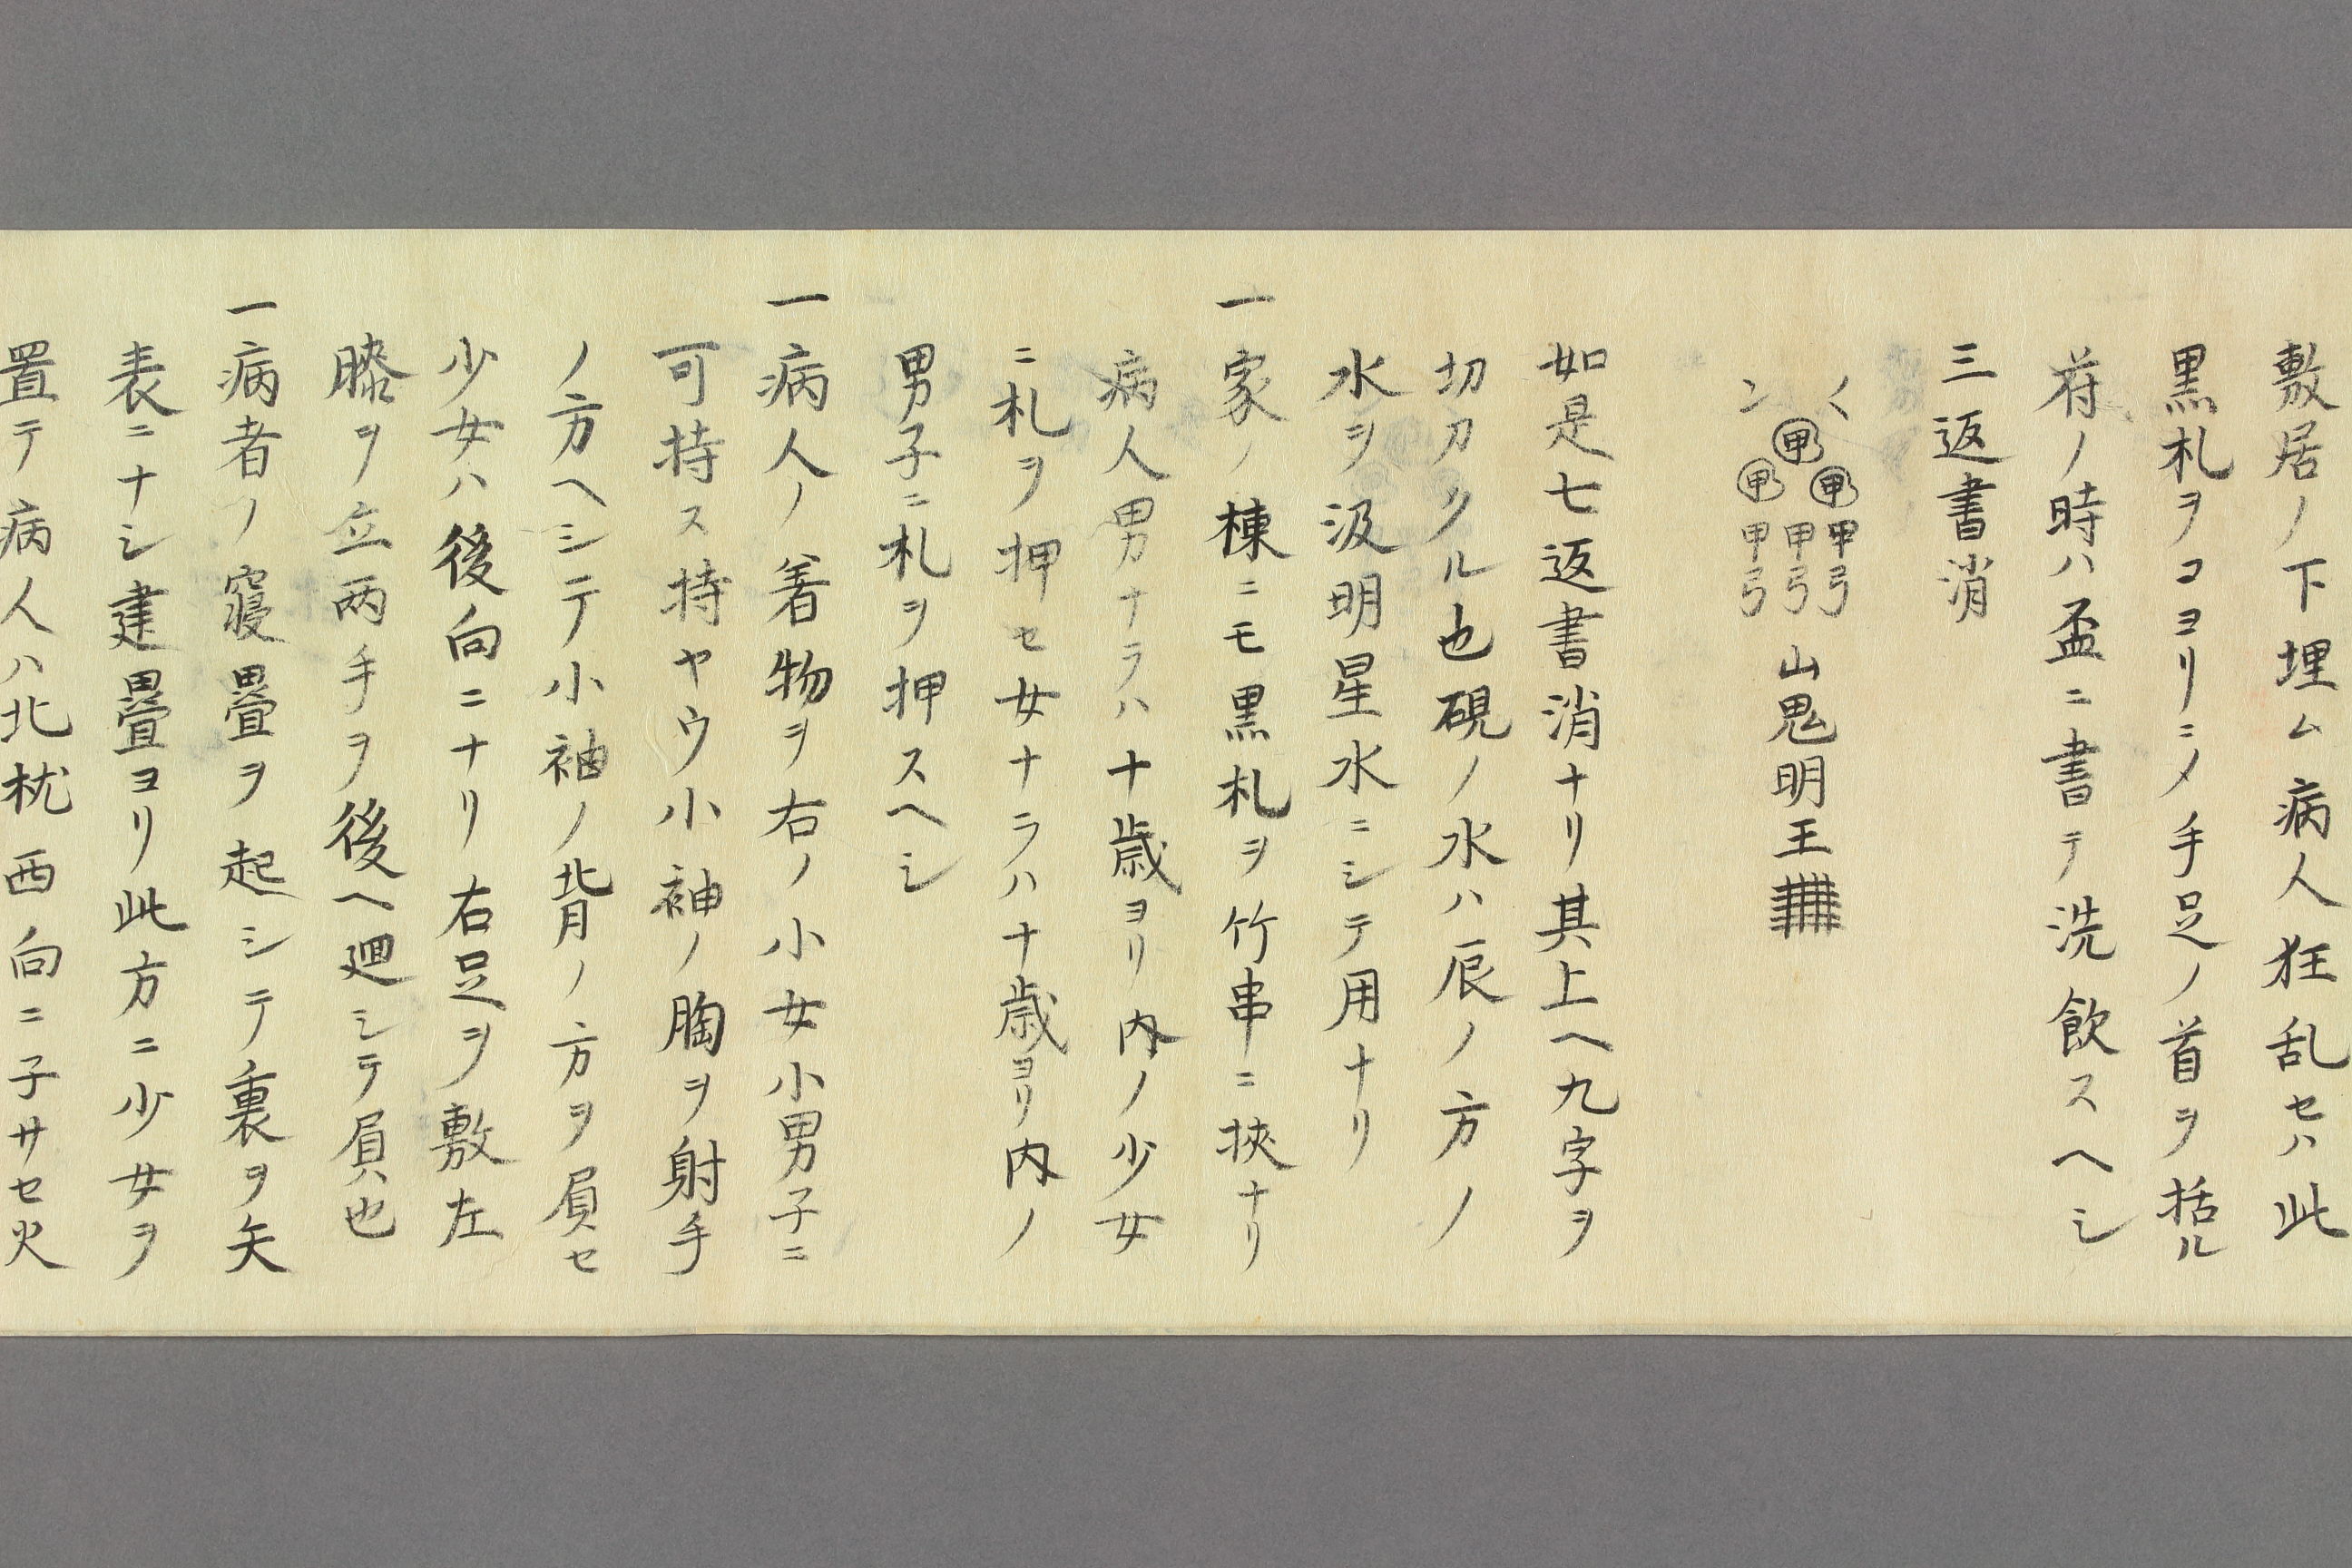 敷居ノ下埋ム病人狂乱セハ此
黒札ヲコヨリニメ手足ノ首ヲ括ル
符ノ時ハ盃ニ書テ洗飲スヘシ
三返書消
甲甲甲甲弓甲弓甲弓山鬼明王
如是七返書消ナリ其上ヘ九字ヲ
切刀クル也硯ノ水ハ辰ノ方ノ
水ヲ汲明星水ニシテ用ナリ
一家ノ棟ニモ黒札ヲ竹串ニ挾ナリ
病人男ナラハ十歳ヨリ内ノ少女
ニ札ヲ押セ女ナラハ十歳ヨリ内ノ
男子ニ札ヲ押スヘシ
一病人ノ着物ヲ右ノ小女小男子ニ
可持ス持ヤウ小袖ノ胸ヲ射手
ノ方ヘシテ小袖ノ背ノ方ヲ屓セ
少女ハ後向ニナリ右足ヲ敷左
膝ヲ立両手ヲ後ヘ廻シテ屓也
一病者ノ寝畳ヲ起シテ裏ヲ矢
表ニナシ建畳ヨリ此方ニ少女ヲ
置テ病人ハ北枕西向ニ子サセ火